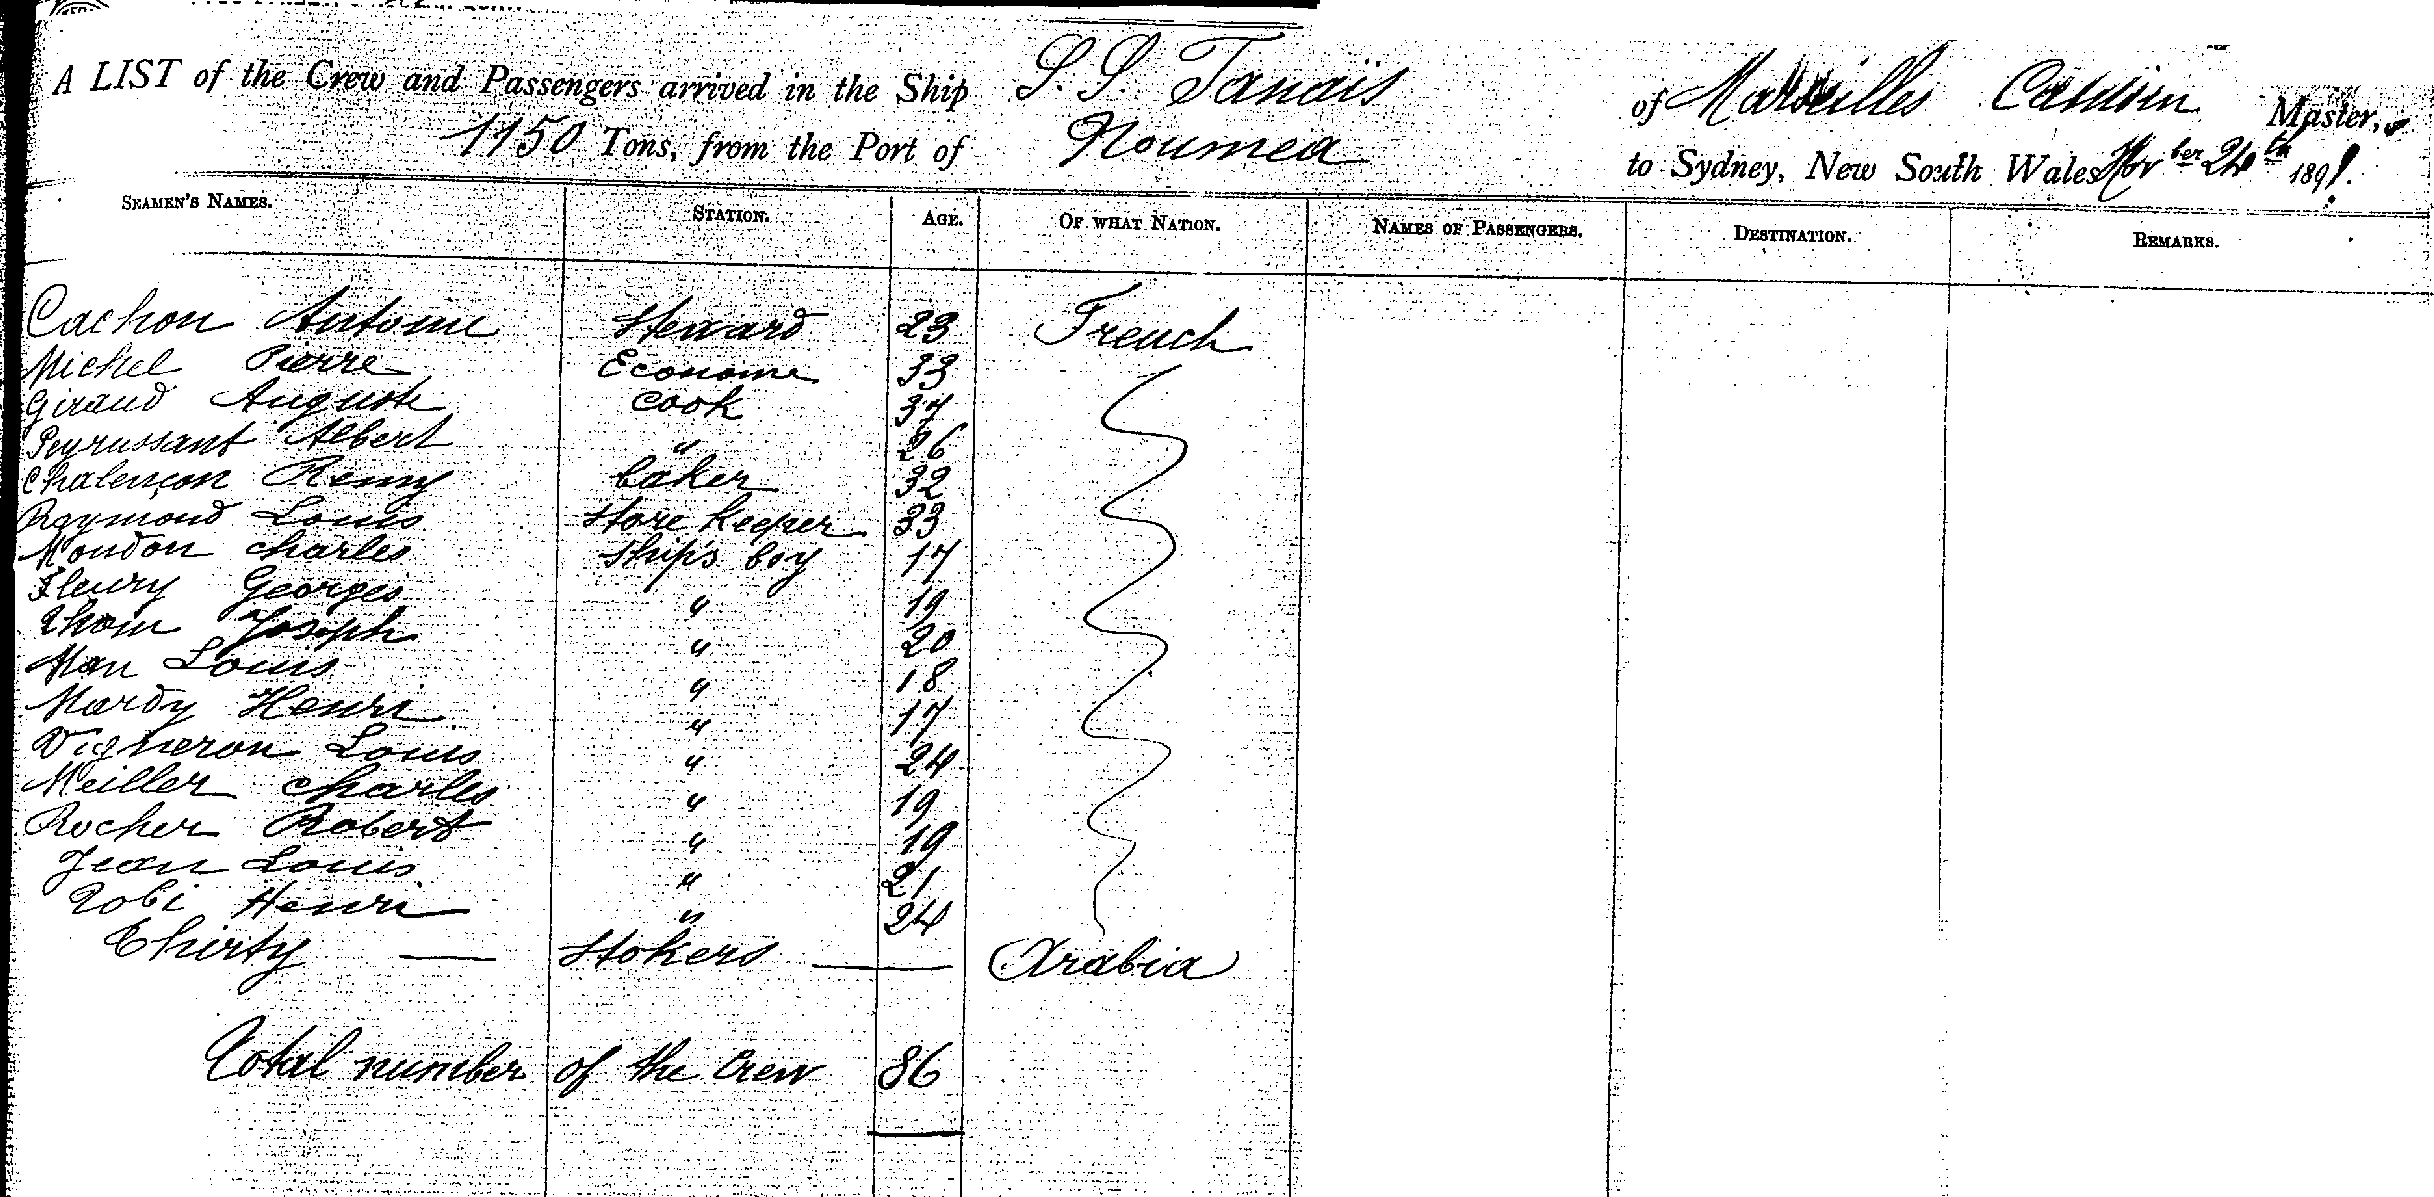 A LIST of the Crew and Passengers arrived in the Ship S. S. Tanais of Marseilles Master,
1150 Tons, from the Port of Noumea to Sydney, New South Wales Novber 24th 1891.
SEAMEN'S NAMES. STATION. AGE. OF WHAT NATION. NAMES OF PASSENGERS. DESTINATION. REMARKS.
Cachon Antoine Steward 23 French
Michel Pierre Econome 33
Giraud Auguste Cook 37
Peyrussant Albert " 26
Chalençon Remy baker 32
Raymond Louis Store Keeper 33
Moudon Charles Ship's boy 17
Fleury Georges " 19
Thom Joseph " 20
Man Louis " 18
Mardy Henri " 17
Vigneron Louis " 24
Meiller Charles " 19
Rocher Robert " 19
Jean Louis " 21
Robi Henri " 24
Thirty — Stokers — Arabia
Total number of the Crew 86